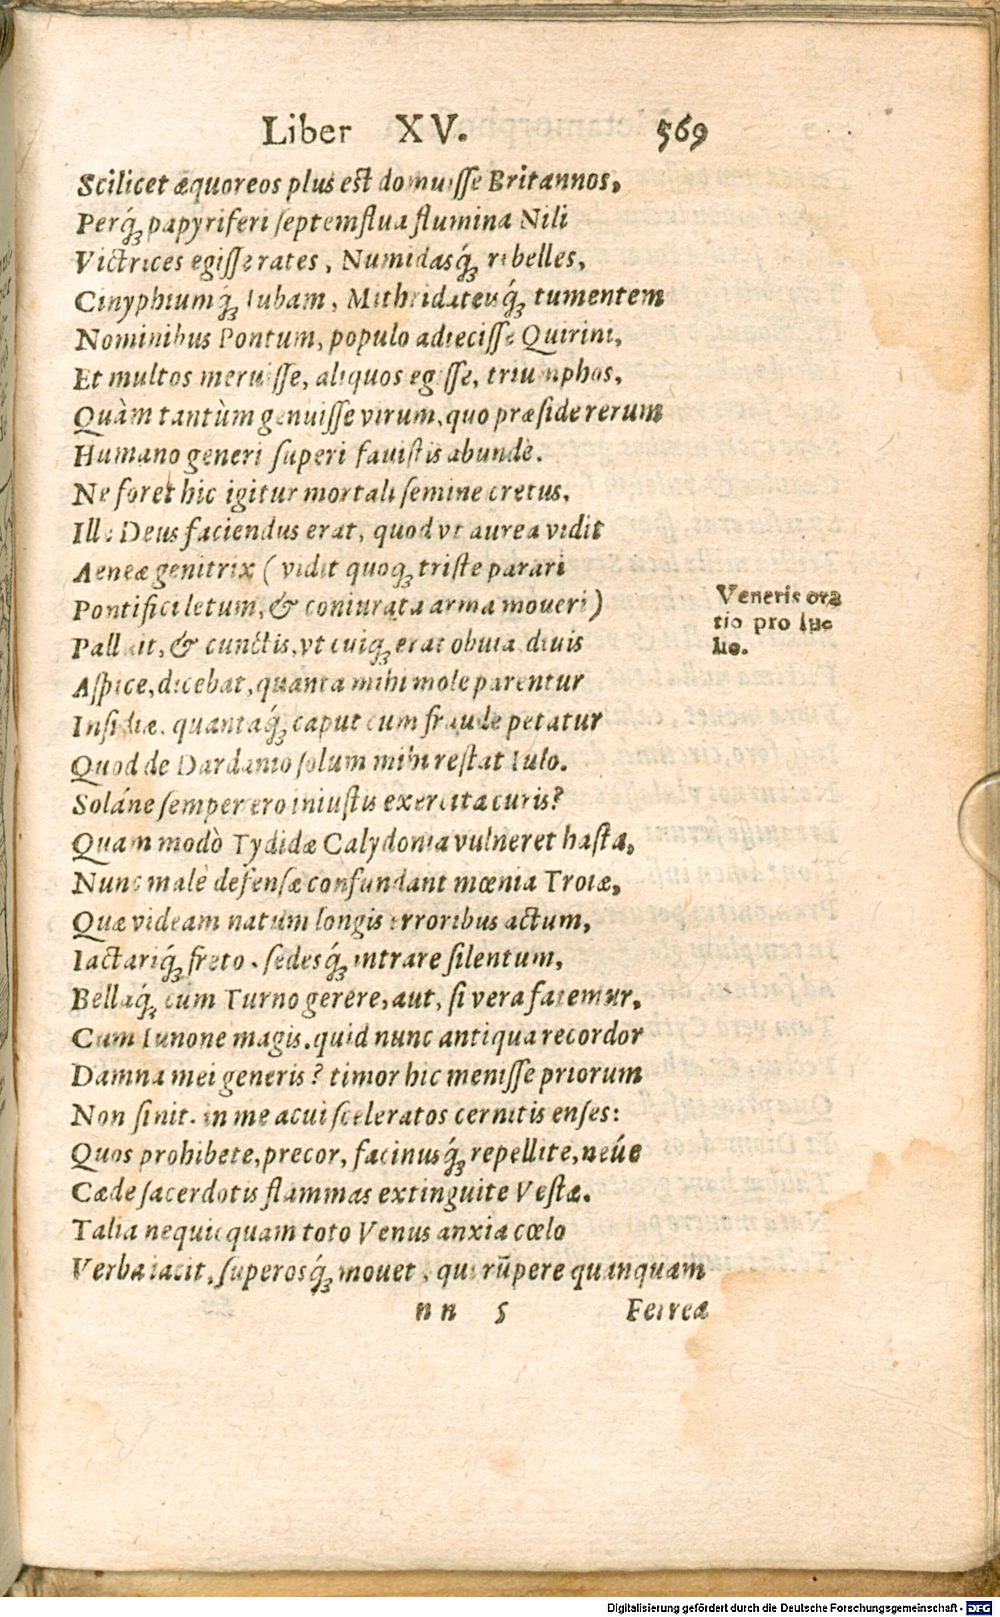 Liber XV. 569
Scilicet æquoreos plus est domuisse Britannos,
Perq́; papyriferi septemflua flumina Nili
Victrices egisse rates, Numidasq́; rebelles,
Cinyphiumq́; Iubam, Mithridateuq́; tumentem
Nominibus Pontum, populo adiecisse Quirini,
Et multos meruisse, aliquos egisse, triumphos,
Quàm tantùm genuisse virum, quo præside rerum
Humano generi superi fauistis abundè.
Ne foret hic igitur mortali semine cretus,
Ille Deus faciendus erat, quod vt aurea vidit
Aeneæ genitrix (vidit quoq; triste parari
Pontifici letum, & coniurata arma moueri)
Palluit, & cunctis, vt cuiq; erat obuia diuis
Aspice, dicebat, quanta mihi mole parentur
Insidiæ. quantaq́; caput cum fraude petatur
Quod de Dardanio solum mihi restat Iulo.
Soláne semper ero iniustis exercita curis?
Quam modò Tydidæ Calydonia vulneret hasta,
Nunc malè defensæ confundant mœnia Troiæ,
Quæ videam natum longis erroribus actum,
Iactariq́; freto. sedesq́; intrare silentum,
Bellaq́; cum Turno gerere, aut, si vera fatemur,
Cum Iunone magis. quid nunc antiqua recordor
Damna mei generis? timor hic menisse priorum
Non sinit. in me acui sceleratos cernitis enses:
Quos prohibete, precor, facinusq́; repellite, neúe
Cæde sacerdotis flammas extinguite Vestæ.
Talia nequicquam toto Venus anxia cœlo
Verba iacit, superosq́; mouet, qui rũpere quanquam
nn 5 Ferreæ
Veneris ora
tio pro Iuc
lio.
Digitalisierung gefördert durch die Deutsche Forschungsgemeinschaft - DFG